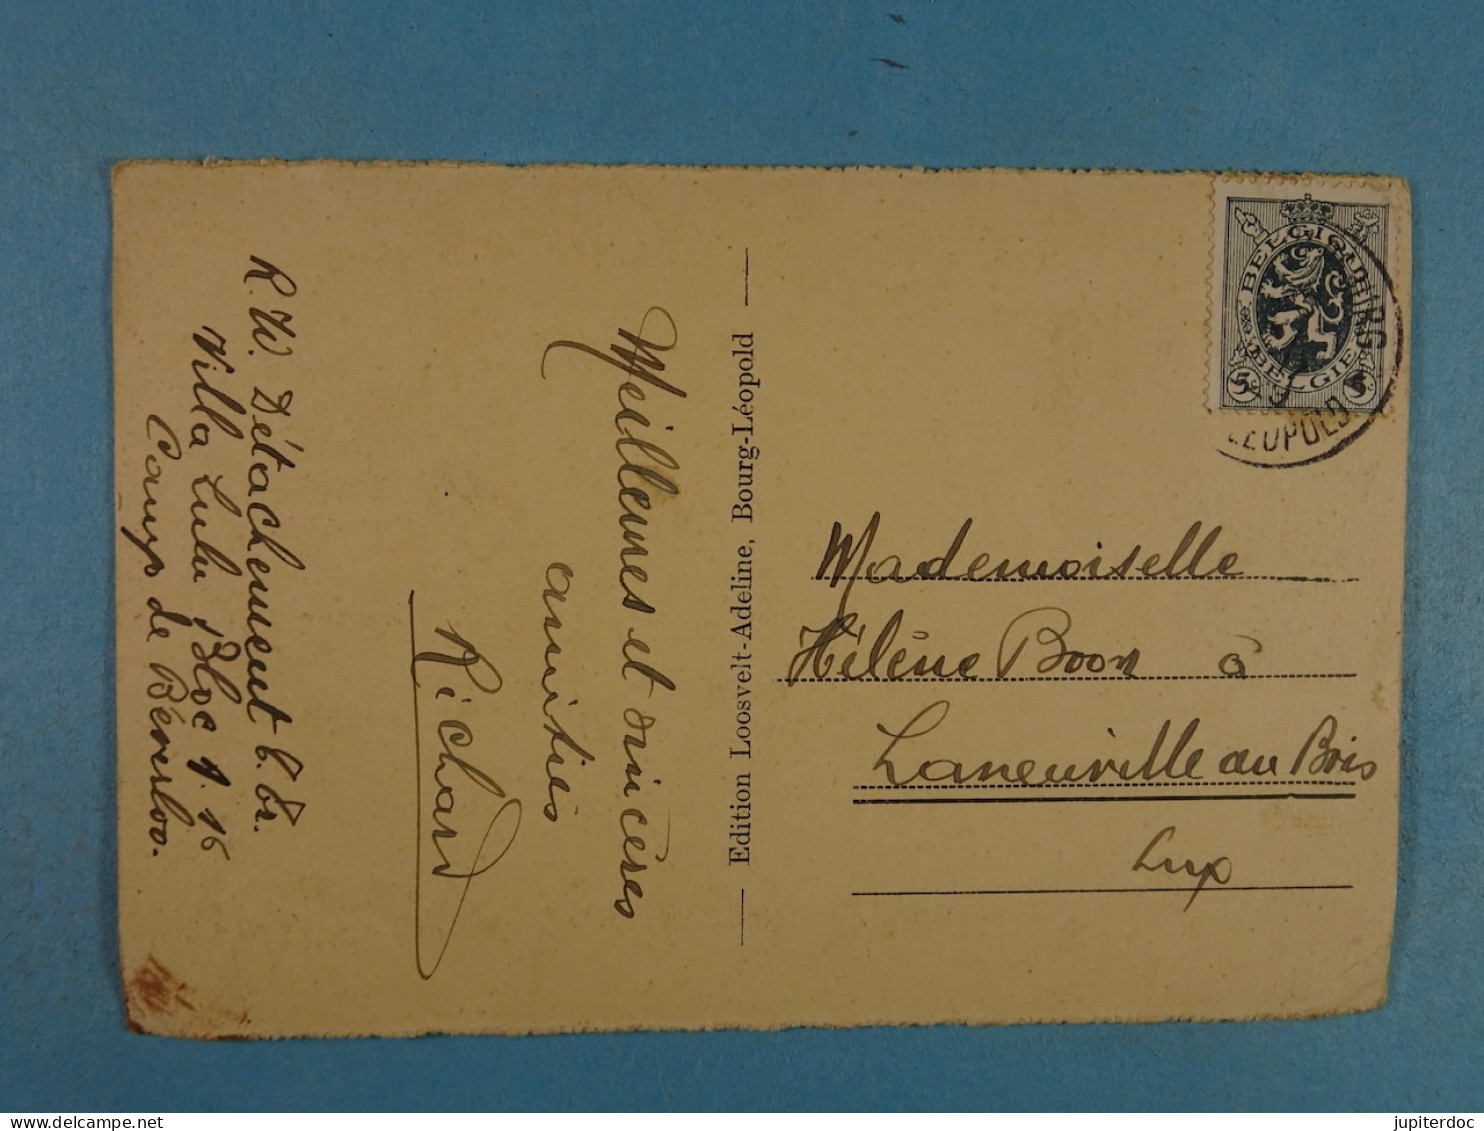 R. W. Détachement C. Br.
Villa Lulu Bloc 9. 16
Camp de Béverloo.
Meilleures et sincères
amitiés
Richard
Edition Loosvelt-Adeline, Bourg-Léopold
BELGIQUE
BELGIE
5 5
BOURG
LEOPOLD
Mademoiselle
Hélène Boon à
Laneuville au Bois
Lux
jupiterdoc